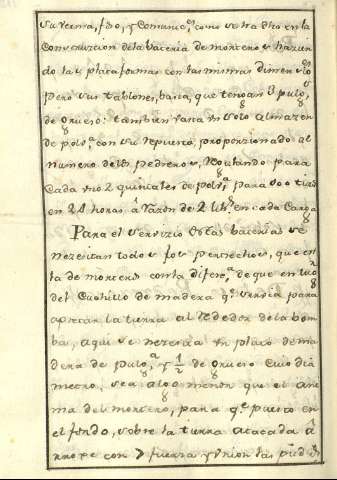 su recima, foso, y Comunicⁿ como se ha dho en la
Construccion de la bateria de morteros haziendo
las plataformas con las mismas dimensiones
Pero sus tablones, basta, que tengan 3 pulgs
de grueso: tambien basta un solo almazen
de polvª con su repuesto, proporzionado al
numero de los pedreros, Regulando para
Cada uno 2 quintales de polvª para 100 tiros
en 24 horas â razon de 2 libs en cada Carga
Para el servizio de estas baterias se
nezesitan todos los pertrechos, que en
la de morteros con la diferª de que en lugr
del Cuchillo de madera qe servia para
apretar la tierra al rededor de la bom
ba, aqui se nezesita un plato de ma
dera de pulgª y 1/2 de grueso cuio diâ
metro, sea algo menor que el ani
ma del mortero, para qe puesto en
el fondo, sobre la tierra atacada â
con fuerza y union las piedrs